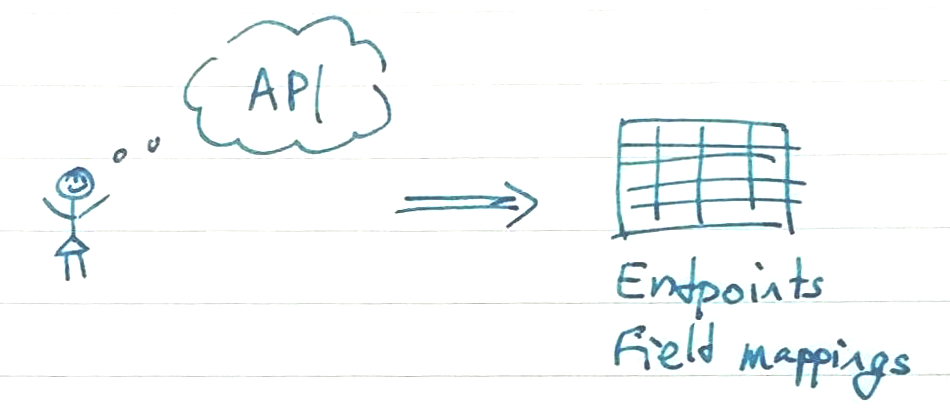 API
Endpoints
Field mappings